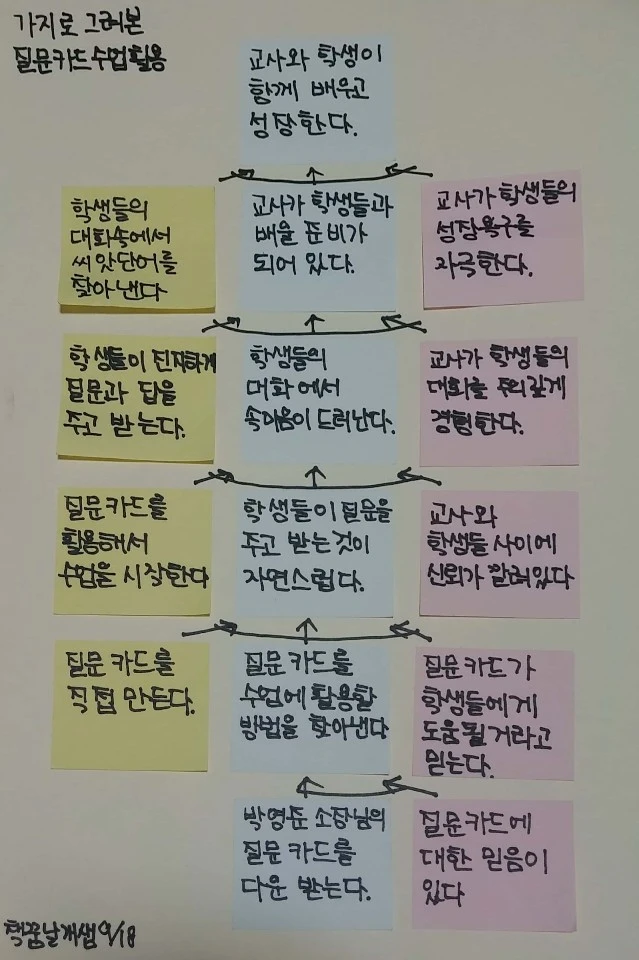 가지로 그려본
질문카드수업활용
교사와 학생이
함께 배우고
성장한다.
학생들의
대화속에서
씨앗단어를
찾아낸다
교사가 학생들과
배울 준비가
되어 있다.
교사가 학생들의
성장욕구를
자극한다.
학생들이 진지하게
질문과 답을
주고 받는다.
학생들의
대화에서
속마음이 드러난다.
교사가 학생들의
대화를 주의깊게
경험한다.
질문카드를
활용해서
수업을 시작한다
학생들이 질문을
주고 받는것이
자연스럽다.
교사와
학생들 사이에
신뢰가 깔려있다
질문 카드를
직접 만든다.
질문 카드를
수업에 활용할
방법을 찾아낸다
질문카드가
학생들에게
도움될거라고
믿는다.
박영준 소장님의
질문 카드를
다운 받는다.
질문카드에
대한 믿음이
있다
책꿈날개샘 9/18